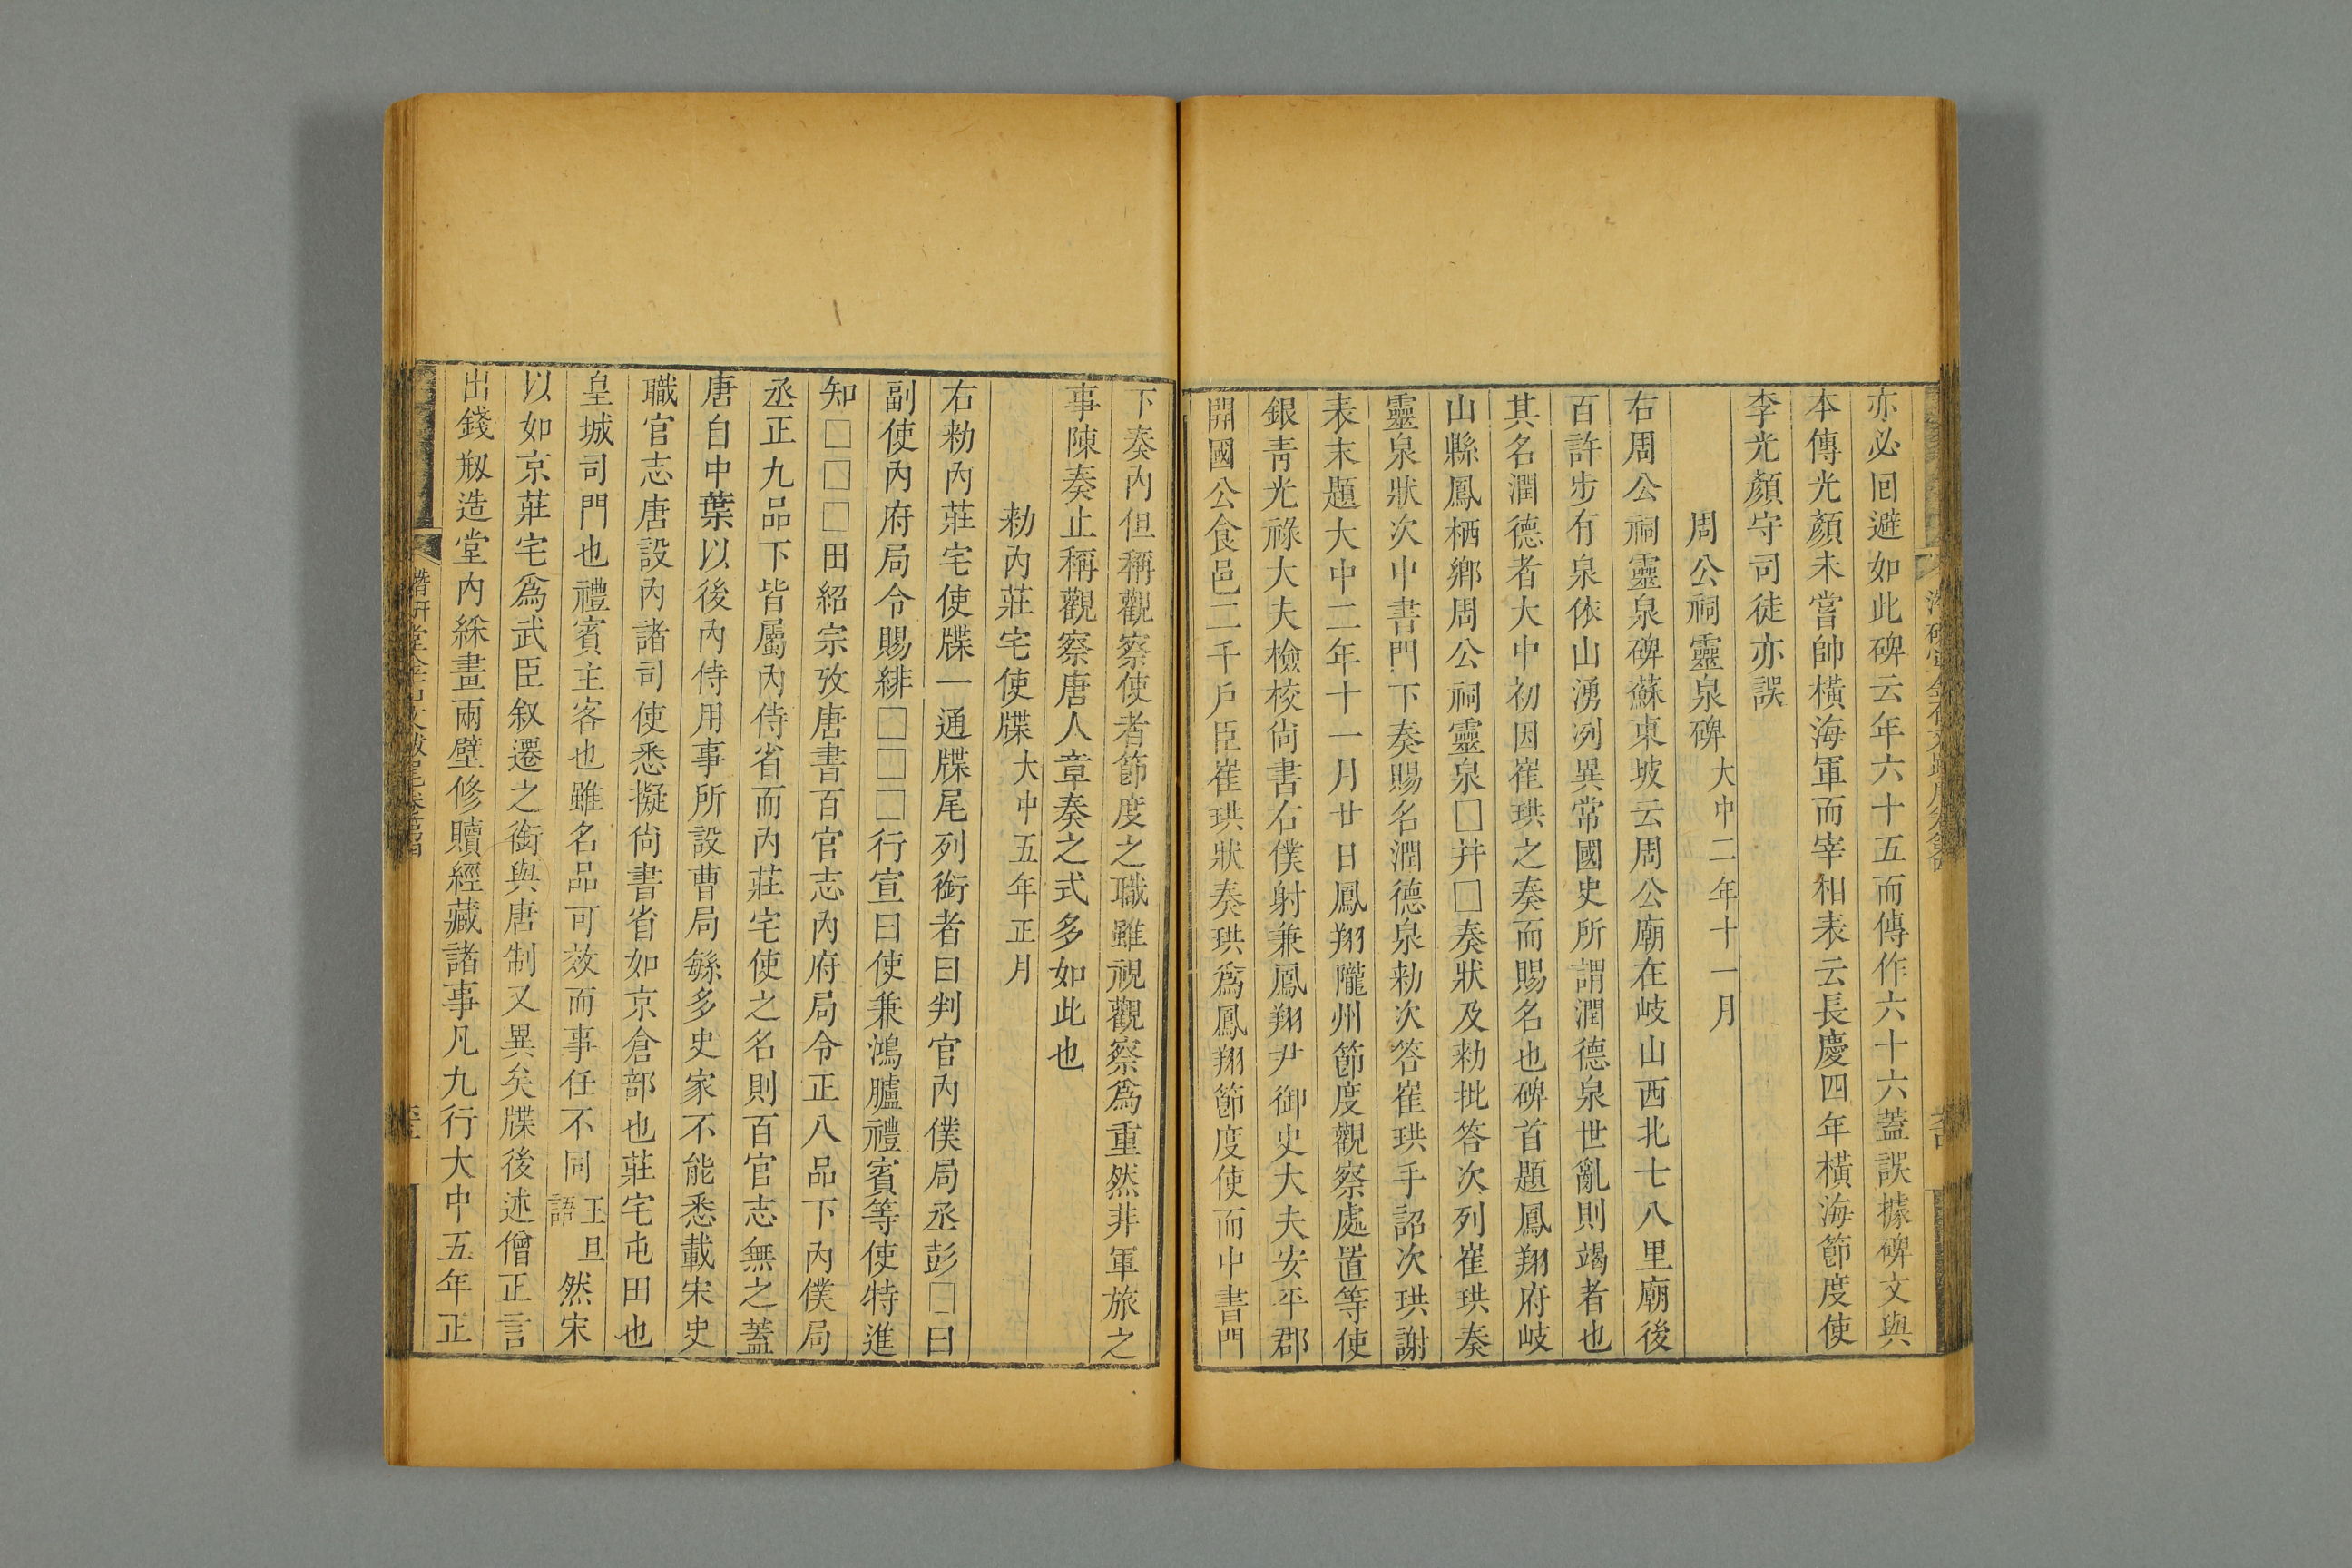 亦必回避如此碑云年六十五而傳作六十六蓋誤據碑文與
本傳光顏未嘗帥橫海軍而宰相表云長慶四年橫海節度使
李光顏守司徒亦誤
周公祠靈泉碑大中二年十一月
右周公祠靈泉碑蘇東坡云周公廟在岐山西北七八里廟後
百許步有泉依山湧冽異常國史所謂潤德泉世亂則竭者也
其名潤德者大中初因崔珙之奏而賜名也碑首題鳳翔府岐
山縣鳳栖鄉周公祠靈泉□并□奏狀及勑批答次列崔珙奏
靈泉狀次中書門下奏賜名潤德泉勑次答崔珙手詔次珙謝
表末題大中二年十一月廿日鳳翔隴州節度觀察處置等使
銀青光祿大夫檢校尙書右僕射兼鳳翔尹御史大夫安平郡
開國公食邑二千戶臣崔珙狀奏珙爲鳳翔節度使而中書門
下奏內但稱觀察使者節度之職雖視觀察爲重然非軍旅之
事陳奏止稱觀察唐人章奏之式多如此也
勑內莊宅使牒大中五年正月
右勑內莊宅使牒一通牒尾列銜者曰判官內僕局丞彭□曰
副使內府局令賜緋□□□行宣曰使兼鴻臚禮賓等使特進
知□□□田紹宗攷唐書百官志內府局令正八品下內僕局
丞正九品下皆屬內侍省而內莊宅使之名則百官志無之蓋
唐自中葉以後內侍用事所設曹局緐多史家不能悉載宋史
職官志唐設內諸司使悉擬尙書省如京倉部也莊宅屯田也
皇城司門也禮賓主客也雖名品可效而事任不同王旦語然宋
以如京莊宅爲武臣叙遷之銜與唐制又異矣牒後述僧正言
出錢剏造堂內綵畫兩壁修贖經藏諸事凡九行大中五年正
潛研堂金石文跋尾卷第四